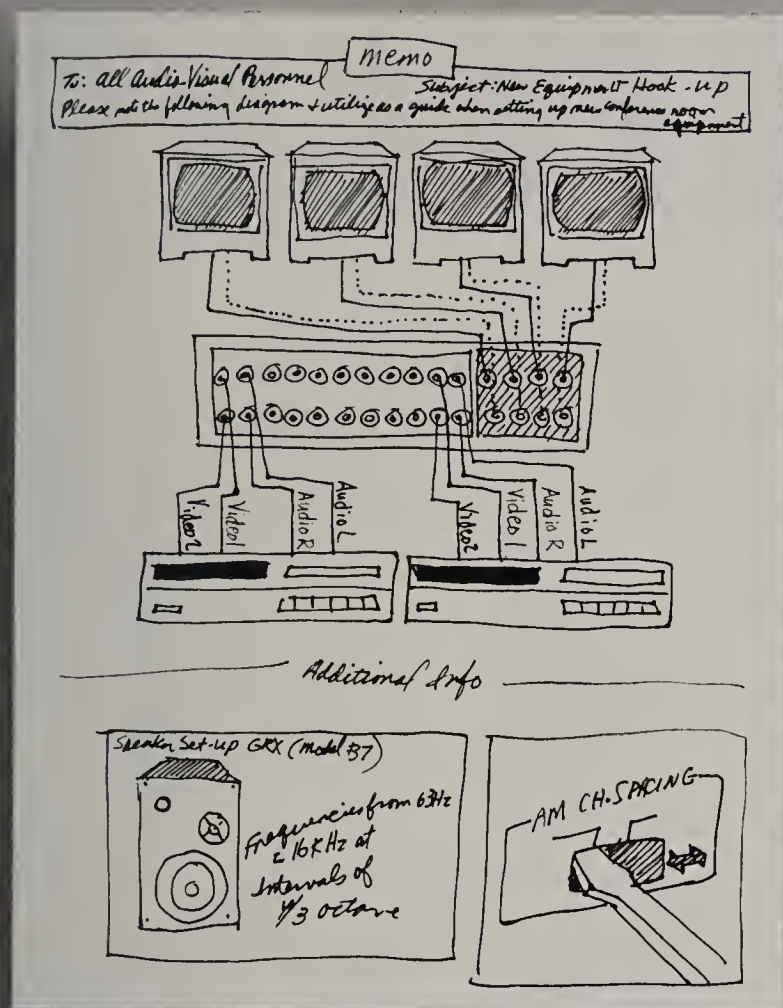 memo
To: All Audio-Visual Personnel
Subject: New Equipment Hook-up
Please note the following diagram & utilize as a guide when setting up new conference room
equipment
Video2
Video1
Audio R
Audio L
Video2
Video 1
Audio R
Audio L
Additional Info
Speaker Set-up GRX (Model B7)
Frequencies from 63Hz
16KHz at
Intervals of
1/3 octave
AM CH. SPACING